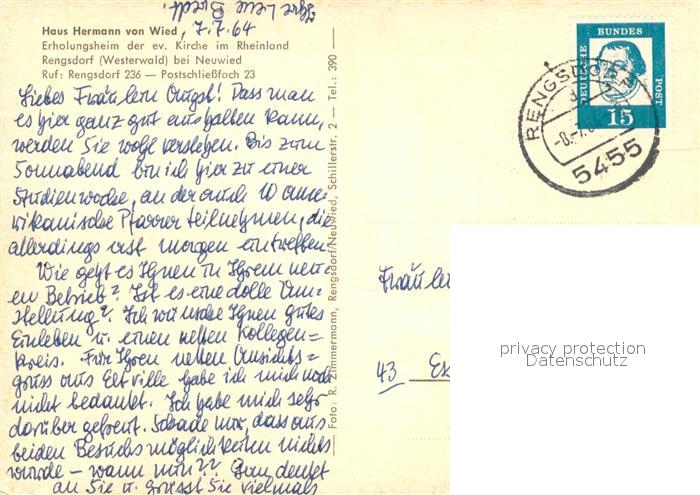 Haus Hermann von Wied, 7.7.64
Erholungsheim der ev. Kirche im Rheinland
Rengsdorf (Westerwald) bei Neuwied
Ruf: Rengsdorf 236 — Postschließfach 23
Liebes Fräulein Ongst! Dass man
es hier ganz gut aushalten kann,
werden Sie wohl verstehen. Bis zum
Sonnabend bin ich hier zu einer
Studienwoche, an der auch 10 ame-
rikanische Pfarrer teilnehmen, die
allerdings erst morgen eintreffen.
Wie geht es Ihnen in Ihrem neu-
en Betrieb? Ist es eine dolle Um-
stellung? Ich wünsche Ihnen gutes
Einleben u. einen netten Kollegen=
kreis. Für Ihren netten Ansichts=
gruss aus Eltville habe ich mich noch
nicht bedankt. Ich habe mich sehr
darüber gefreut. Schade nur, dass aus
beiden Besuchsmöglichkeiten nichts
wurde — wann nun?? Gern denkt
an Sie u. grüsst Sie vielmals
Ihre
Foto: R. Zimmermann, Rengsdorf/Neuwied, Schillerstr. 2 — Tel.: 390 —
DEUTSCHE BUNDESPOST
15
RENGSDORF
-8.-7.
5455
Fräulein
43 Es
privacy protection
Datenschutz